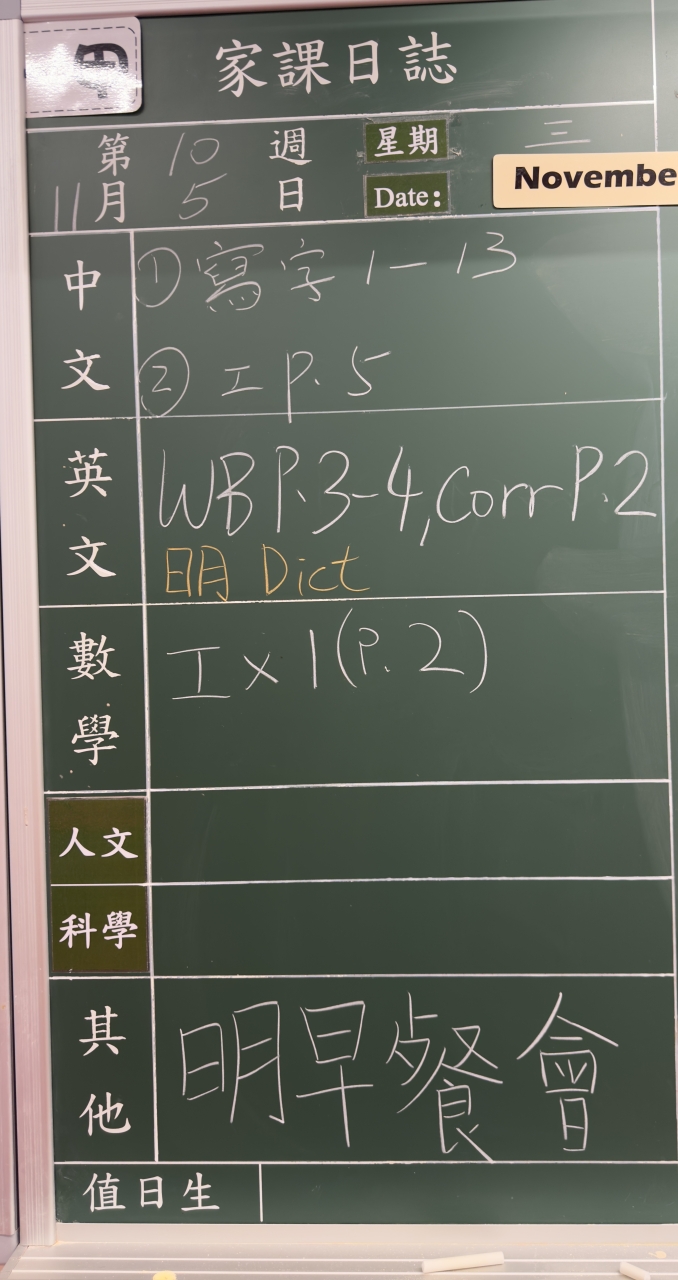 家課日誌
第 10 週 星期 三
11月 5 日 Date: Novembe
中文 ①寫字 1-13
②工 P.5
英文 WB P.3-4, Corr P.2
明 Dict
數學 工 x 1 (P.2)
人文
科學
其他 明早餐會
值日生